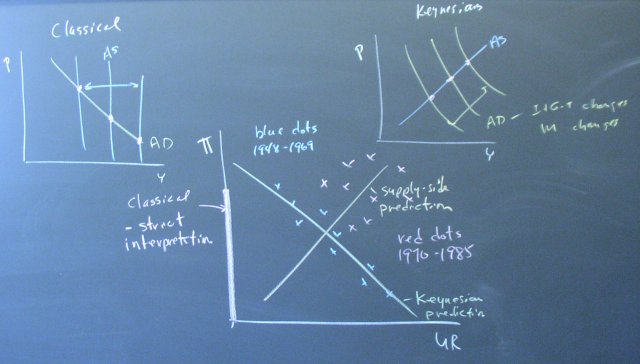 Classical
P
AS
AD
Y
Keynesian
P
AS
AD - I+G-T changes
M changes
Y
blue dots
1948-1969
π
Classical
- strict
interpretation
supply-side
prediction
red dots
1970-1985
Keynesian
prediction
UR